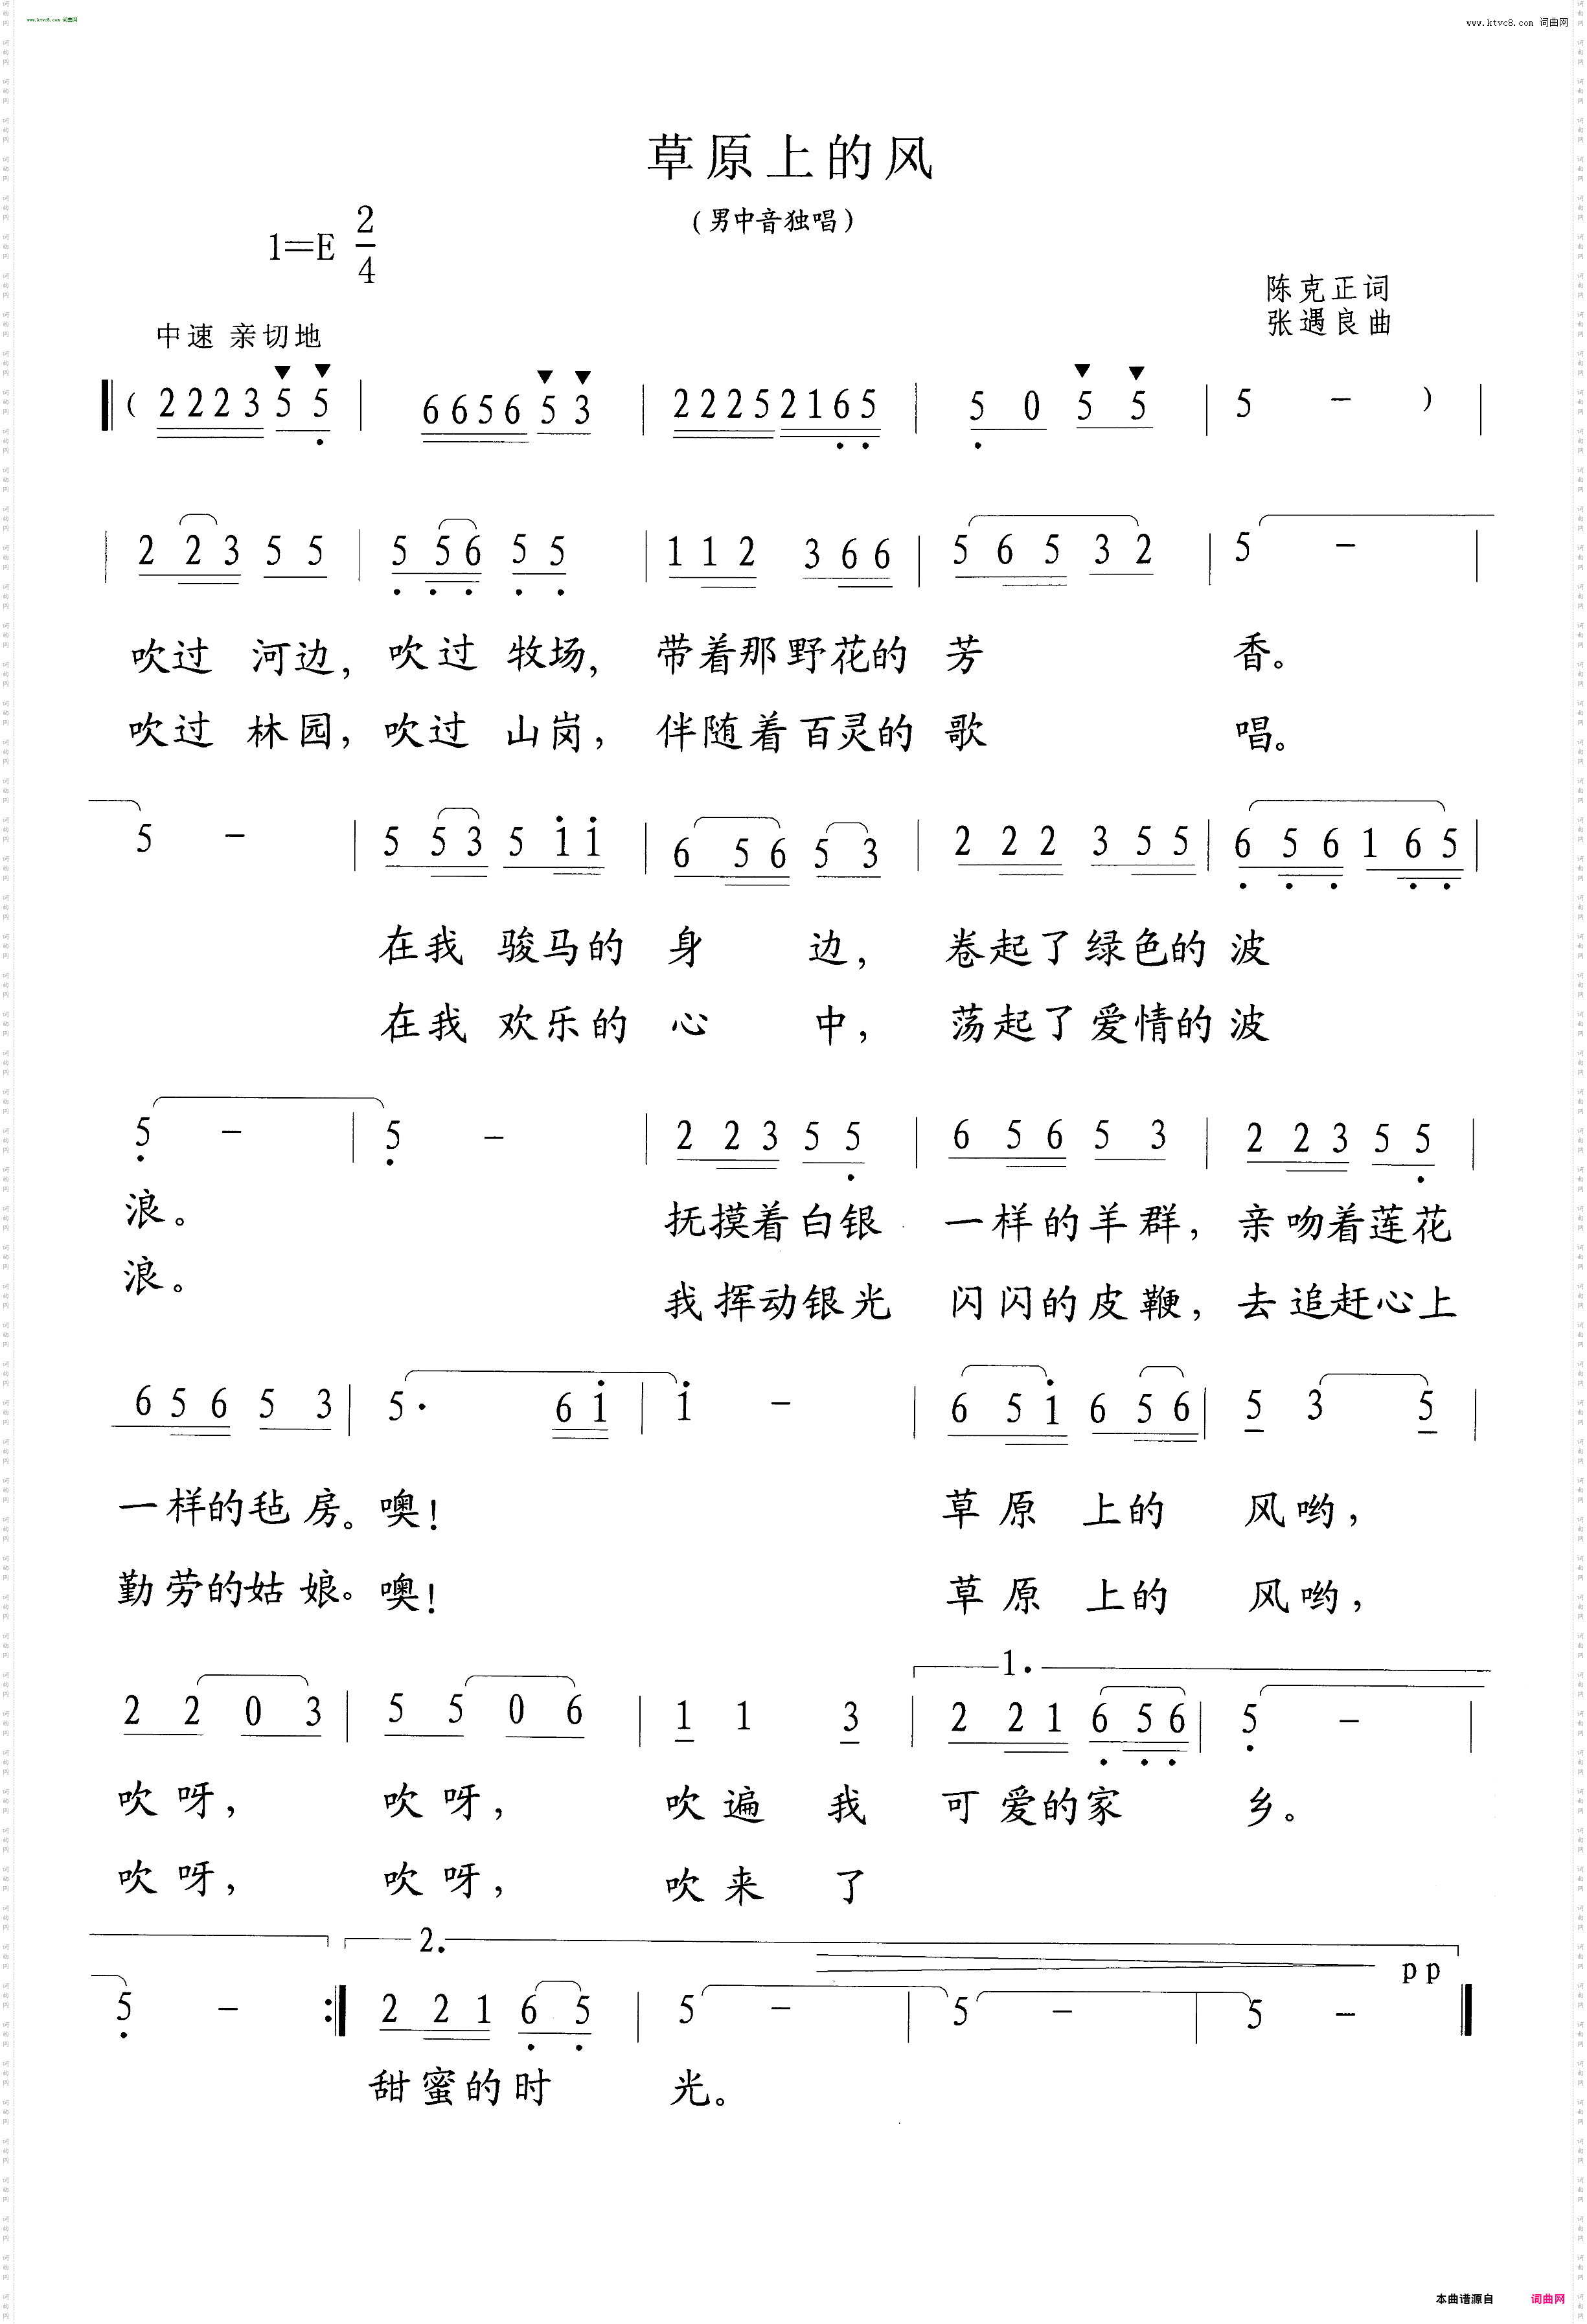 www.ktvc8.com 词曲网
www.ktvc8.com 词曲网
草原上的风
(男中音独唱)
1=E 2/4
陈克正词
张遇良曲
中速 亲切地
( 2 2 2 3 5 5 | 6 6 5 6 5 3 | 2 2 2 5 2 1 6 5 | 5 0 5 5 | 5 - ) |
| 2 2 3 5 5 | 5 5 6 5 5 | 1 1 2 3 6 6 | 5 6 5 3 2 | 5 - |
吹过 河边, 吹过 牧场, 带着那野花的 芳 香。
吹过 林园, 吹过 山岗, 伴随着百灵的 歌 唱。
5 - | 5 5 3 5 1 1 | 6 5 6 5 3 | 2 2 2 3 5 5 | 6 5 6 1 6 5 |
在我 骏马的 身 边, 卷起了绿色的 波
在我 欢乐的 心 中, 荡起了爱情的 波
5 - | 5 - | 2 2 3 5 5 | 6 5 6 5 3 | 2 2 3 5 5 |
浪。 抚摸着白银 一样的羊群, 亲吻着莲花
浪。 我挥动银光 闪闪的皮鞭, 去追赶心上
6 5 6 5 3 | 5· 6 1 | 1 - | 6 5 1 6 5 6 | 5 3 5 |
一样的毡房。噢! 草原 上的 风哟,
勤劳的姑娘。噢! 草原 上的 风哟,
1.
2 2 0 3 | 5 5 0 6 | 1 1 3 | 2 2 1 6 5 6 | 5 - |
吹呀, 吹呀, 吹遍 我 可爱的家 乡。
吹呀, 吹呀, 吹来 了
2.
pp
5 - :| 2 2 1 6 5 | 5 - | 5 - | 5 - |
甜蜜的时 光。
本曲谱源自 词曲网